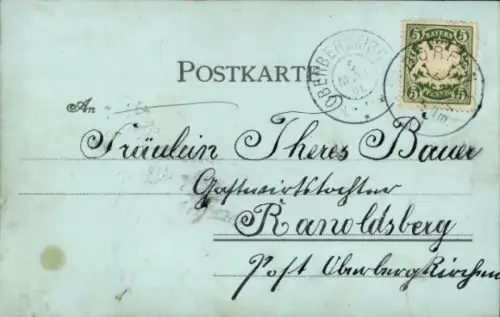 POSTKARTE
An
Fräulein Theres Bauer
Gastwirtstochter
Ranoldsberg
Post Oberbergkirchen
5 BAYERN 5
5 PFENNIG 5